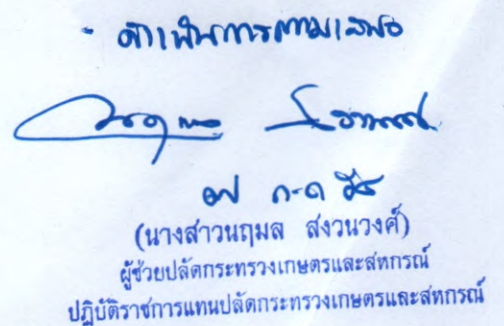 - ดำเนินการตามเสนอ
(นางสาวนฤมล สงวนวงศ์)
ผู้ช่วยปลัดกระทรวงเกษตรและสหกรณ์
ปฏิบัติราชการแทนปลัดกระทรวงเกษตรและสหกรณ์